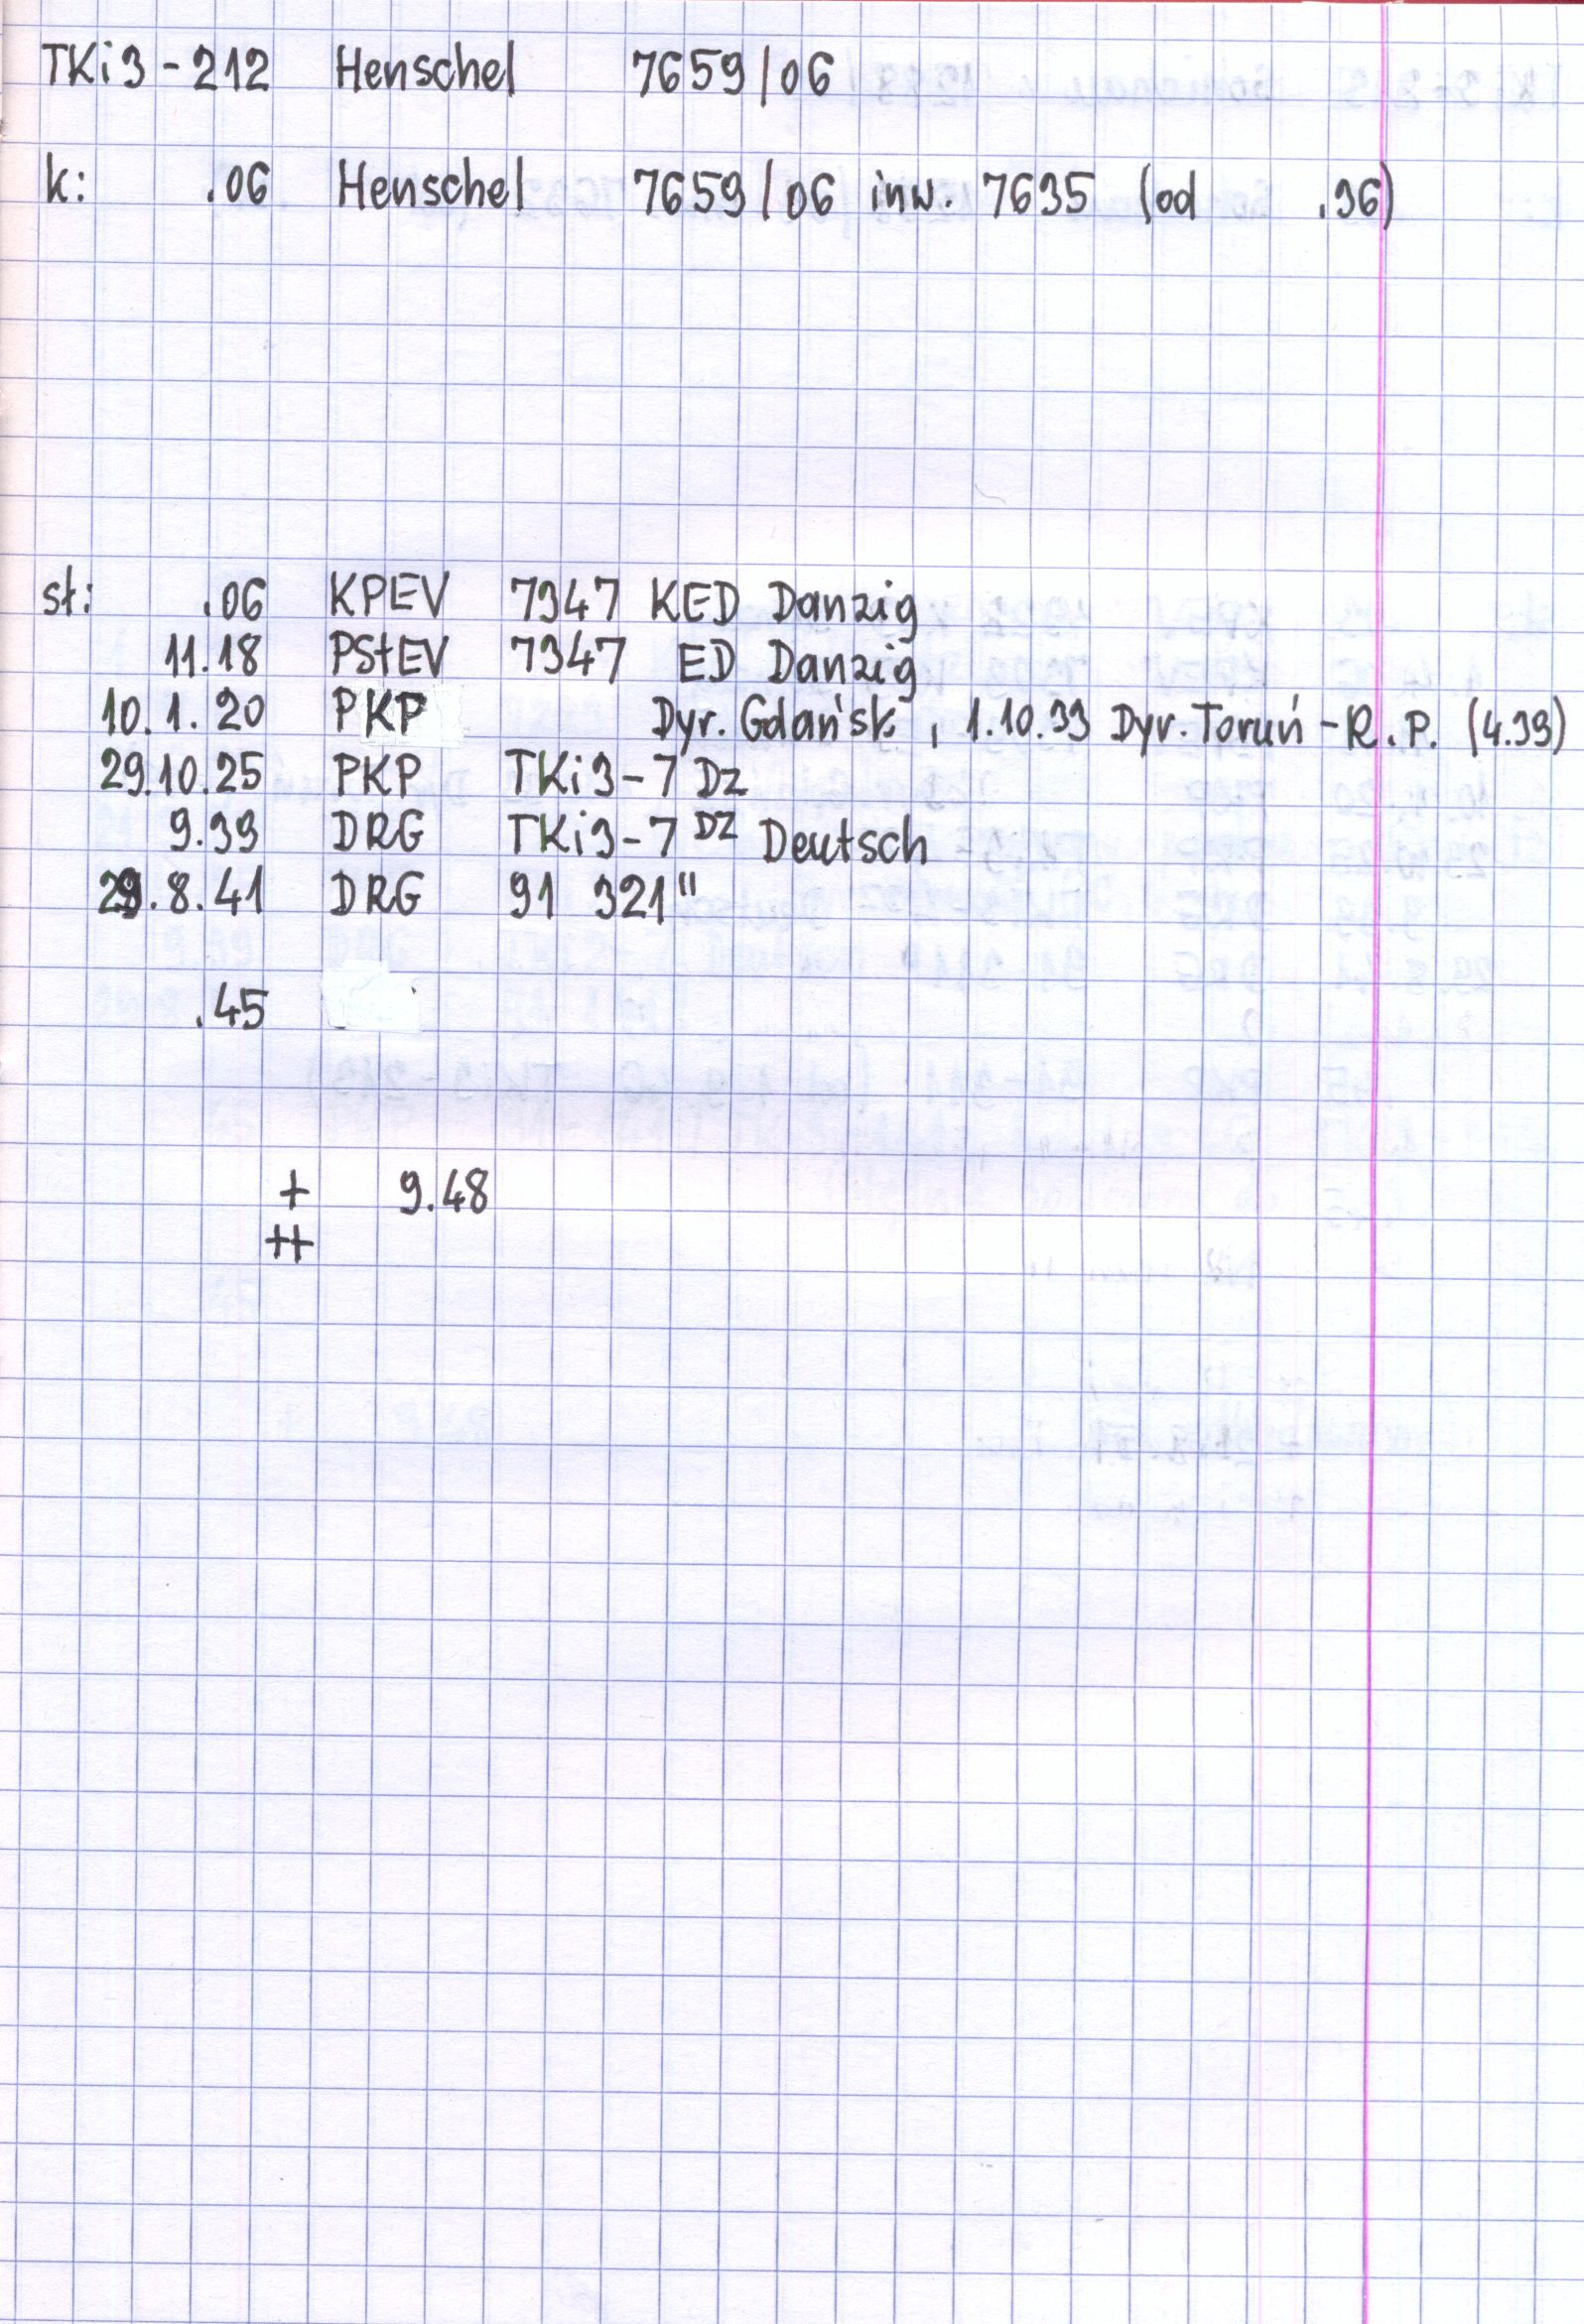 TKi3-212 Henschel 7659/06
k: .06 Henschel 7659/06 inw. 7635 (od .36)
st: .06 KPEV 7347 KED Danzig
11.18 PStEV 7347 ED Danzig
10.1.20 PKP Dyr. Gdańsk, 1.10.33 Dyr. Toruń - R.P. (4.39)
29.10.25 PKP TKi3-7 Dz
9.39 DRG TKi3-7 Dz Deutsch
29.8.41 DRG 91 321"
.45
+ 9.48
++